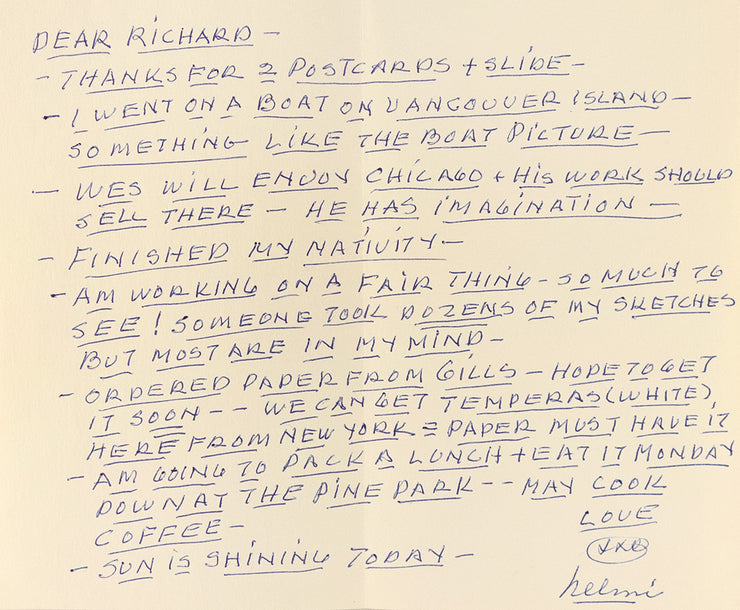 DEAR RICHARD —
– THANKS FOR 2 POSTCARDS + SLIDE –
– I WENT ON A BOAT ON VANCOUVER ISLAND –
SOMETHING LIKE THE BOAT PICTURE –
– WES WILL ENJOY CHICAGO + HIS WORK SHOULD
SELL THERE – HE HAS IMAGINATION –
– FINISHED MY NATIVITY –
– AM WORKING ON A FAIR THING – SO MUCH TO
SEE! SOMEONE TOOK DOZENS OF MY SKETCHES
BUT MOST ARE IN MY MIND –
– ORDERED PAPER FROM GILLS – HOPE TO GET
IT SOON – – WE CAN GET TEMPERAS (WHITE)
HERE FROM NEW YORK = PAPER MUST HAVE IT
– AM GOING TO PACK A LUNCH + EAT IT MONDAY
DOWN AT THE PINE PARK – – MAY COOK
COFFEE –
– SUN IS SHINING TODAY –
LOVE
XXO
helmi